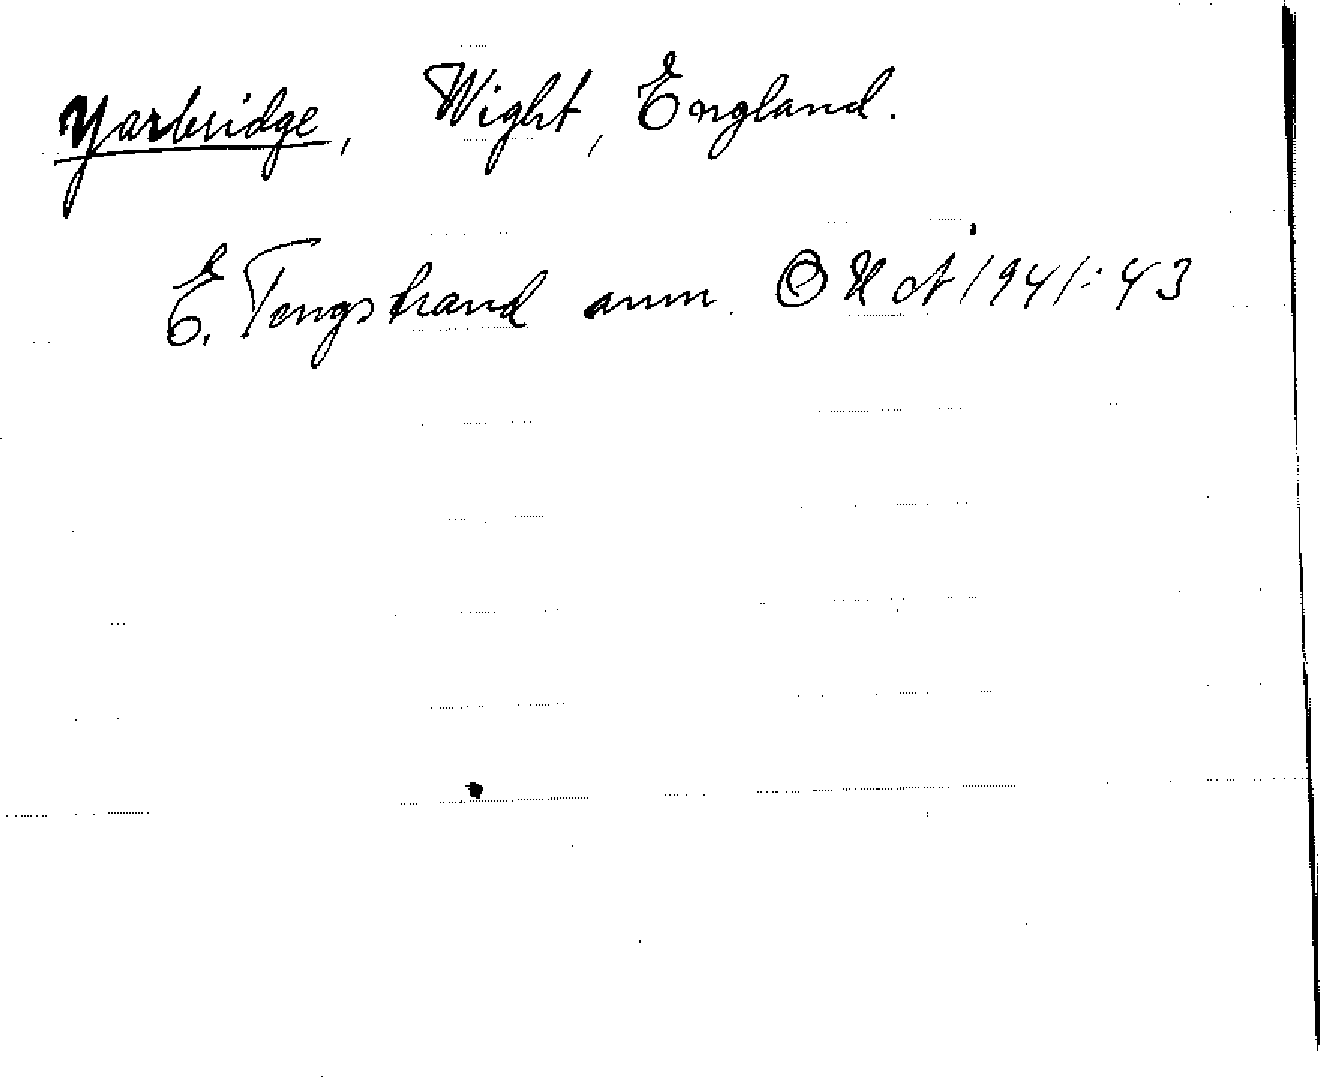 Yarbridge, Wight, England.
E. Tengstrand anm. 1941: 43